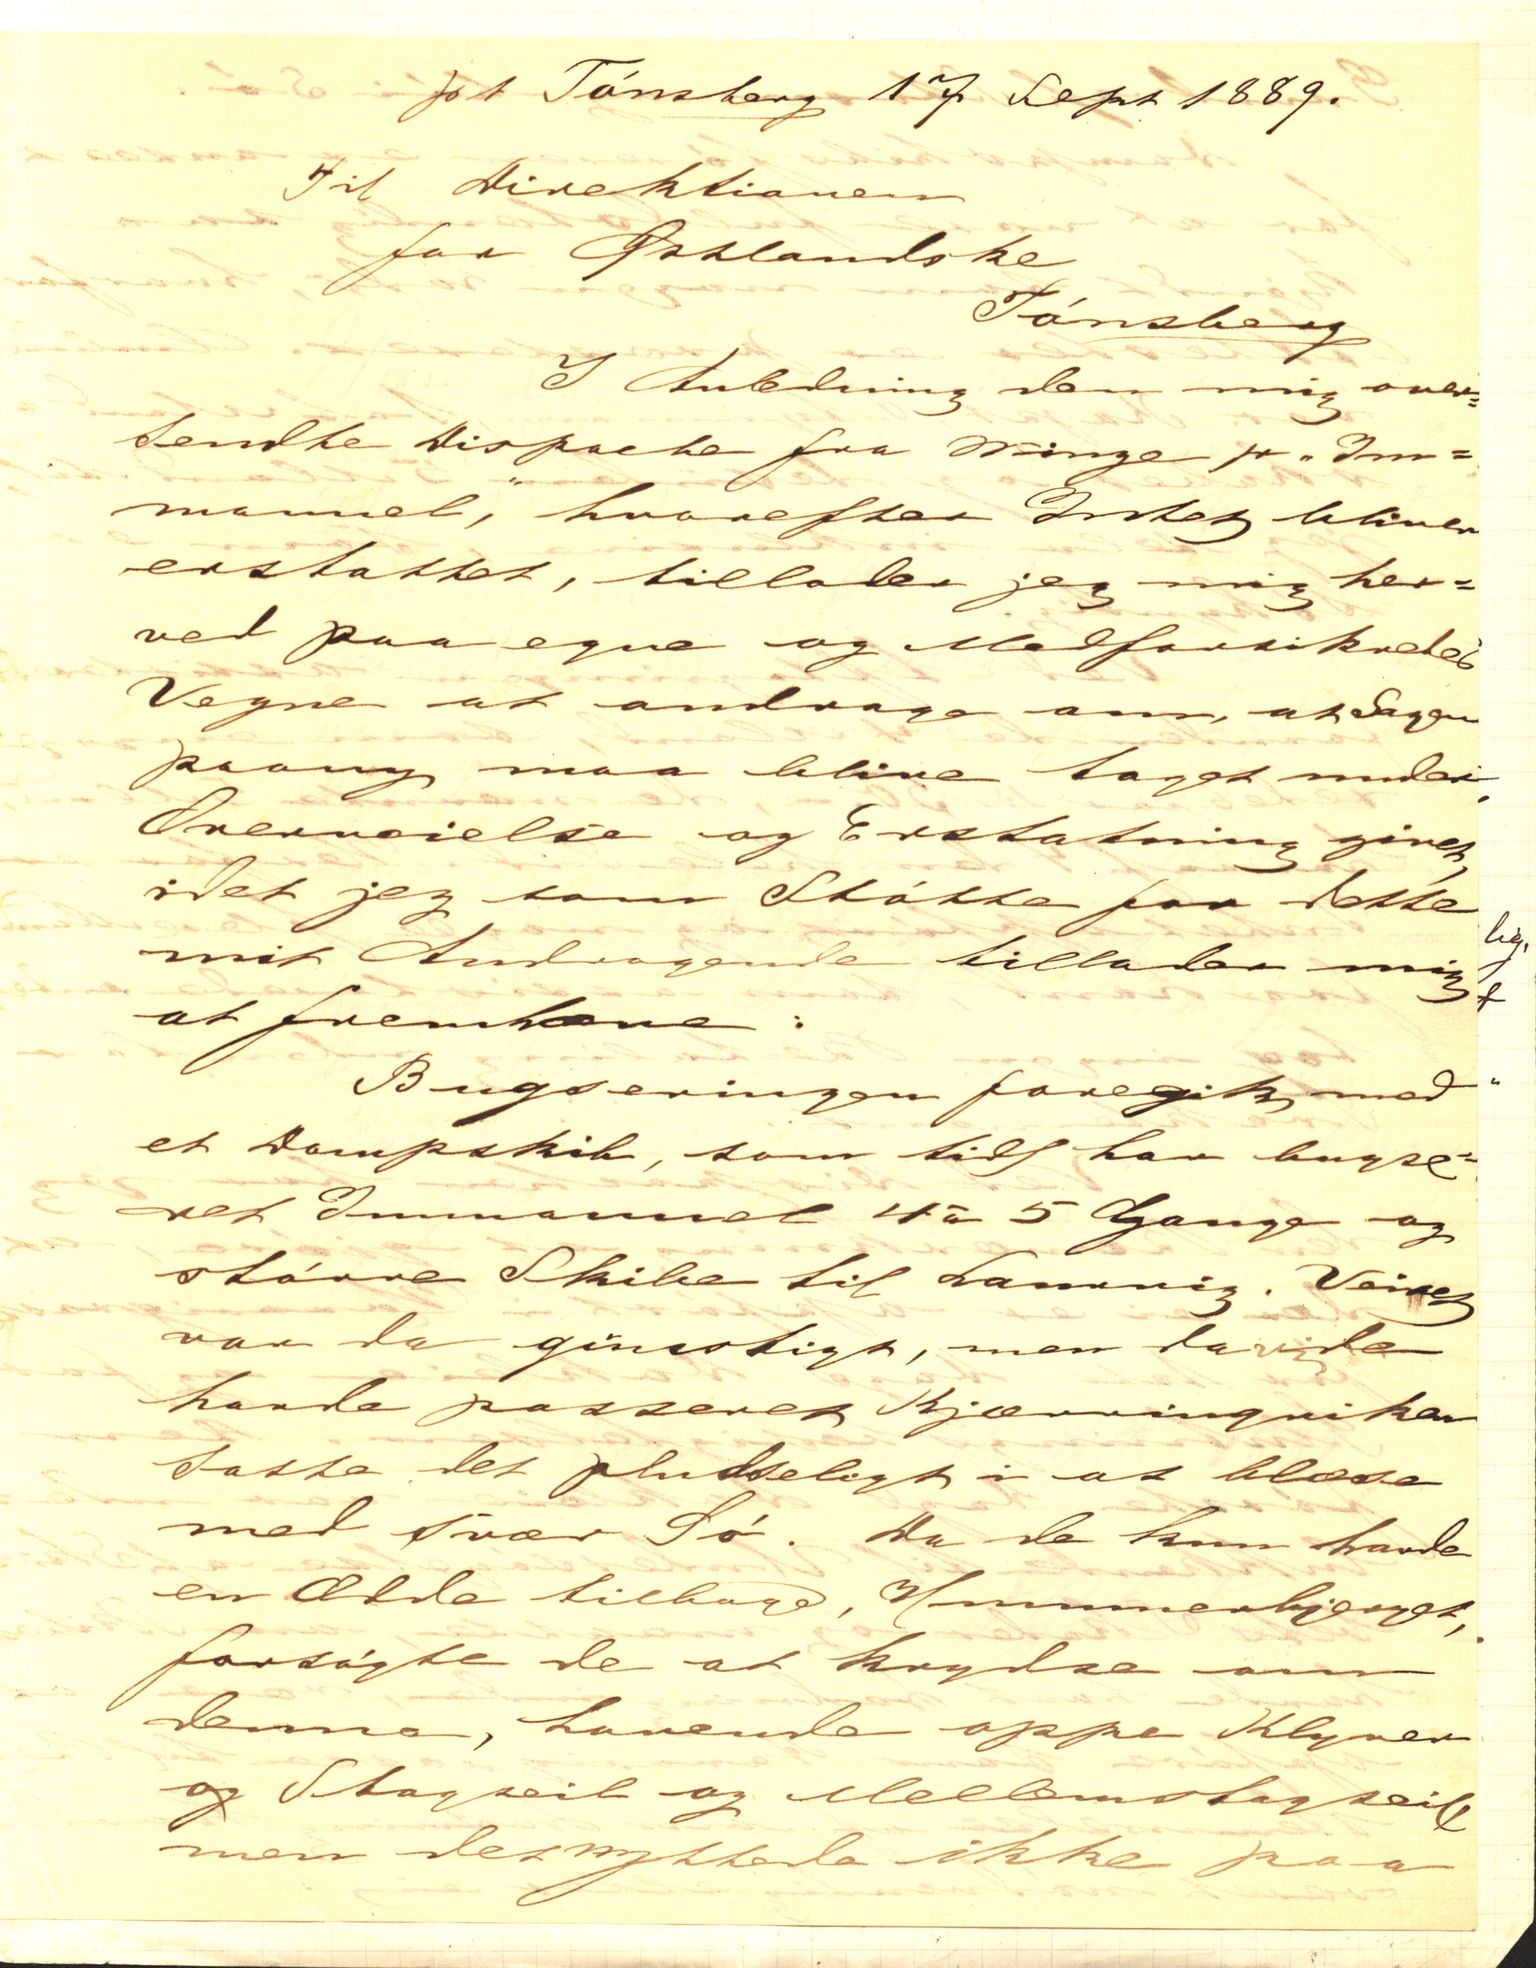 pt Tönsberg 17 Sept 1889.
Til Direktionen
for Østlandske
Tönsberg
I Anledning den mig over=
sendte Dispache fra Minge pr. "Im=
manuel," hvorefter Intet bliver
erstattet, tillader jeg mig her=
ved paa egne og Medforsikredes
Vegne at andrage om, at Sagen
paany maa blive taget under
Overveielse og Erstatning givet,
idet jeg som Stötte for dette
mit Andragende tillader mig
at fremhæve:
Bugseringen foregik med
et Dampskib, som tidl har bugse=
ret Immanuel 4 à 5 Gange og
större Skibe til Laurvig. Veiret
var da günstigt, men da de
havde passeret Kjærringviken
satte det pludseligt i at blæse
med svær Sö. Da de kun havde
en Odde tilbage, Hummerbjerget,
forsögte de at krydse om
denne, havende oppe Klyver
og Stagseil og Mellemstagseil,
men det nyttede ikke paa
lig.